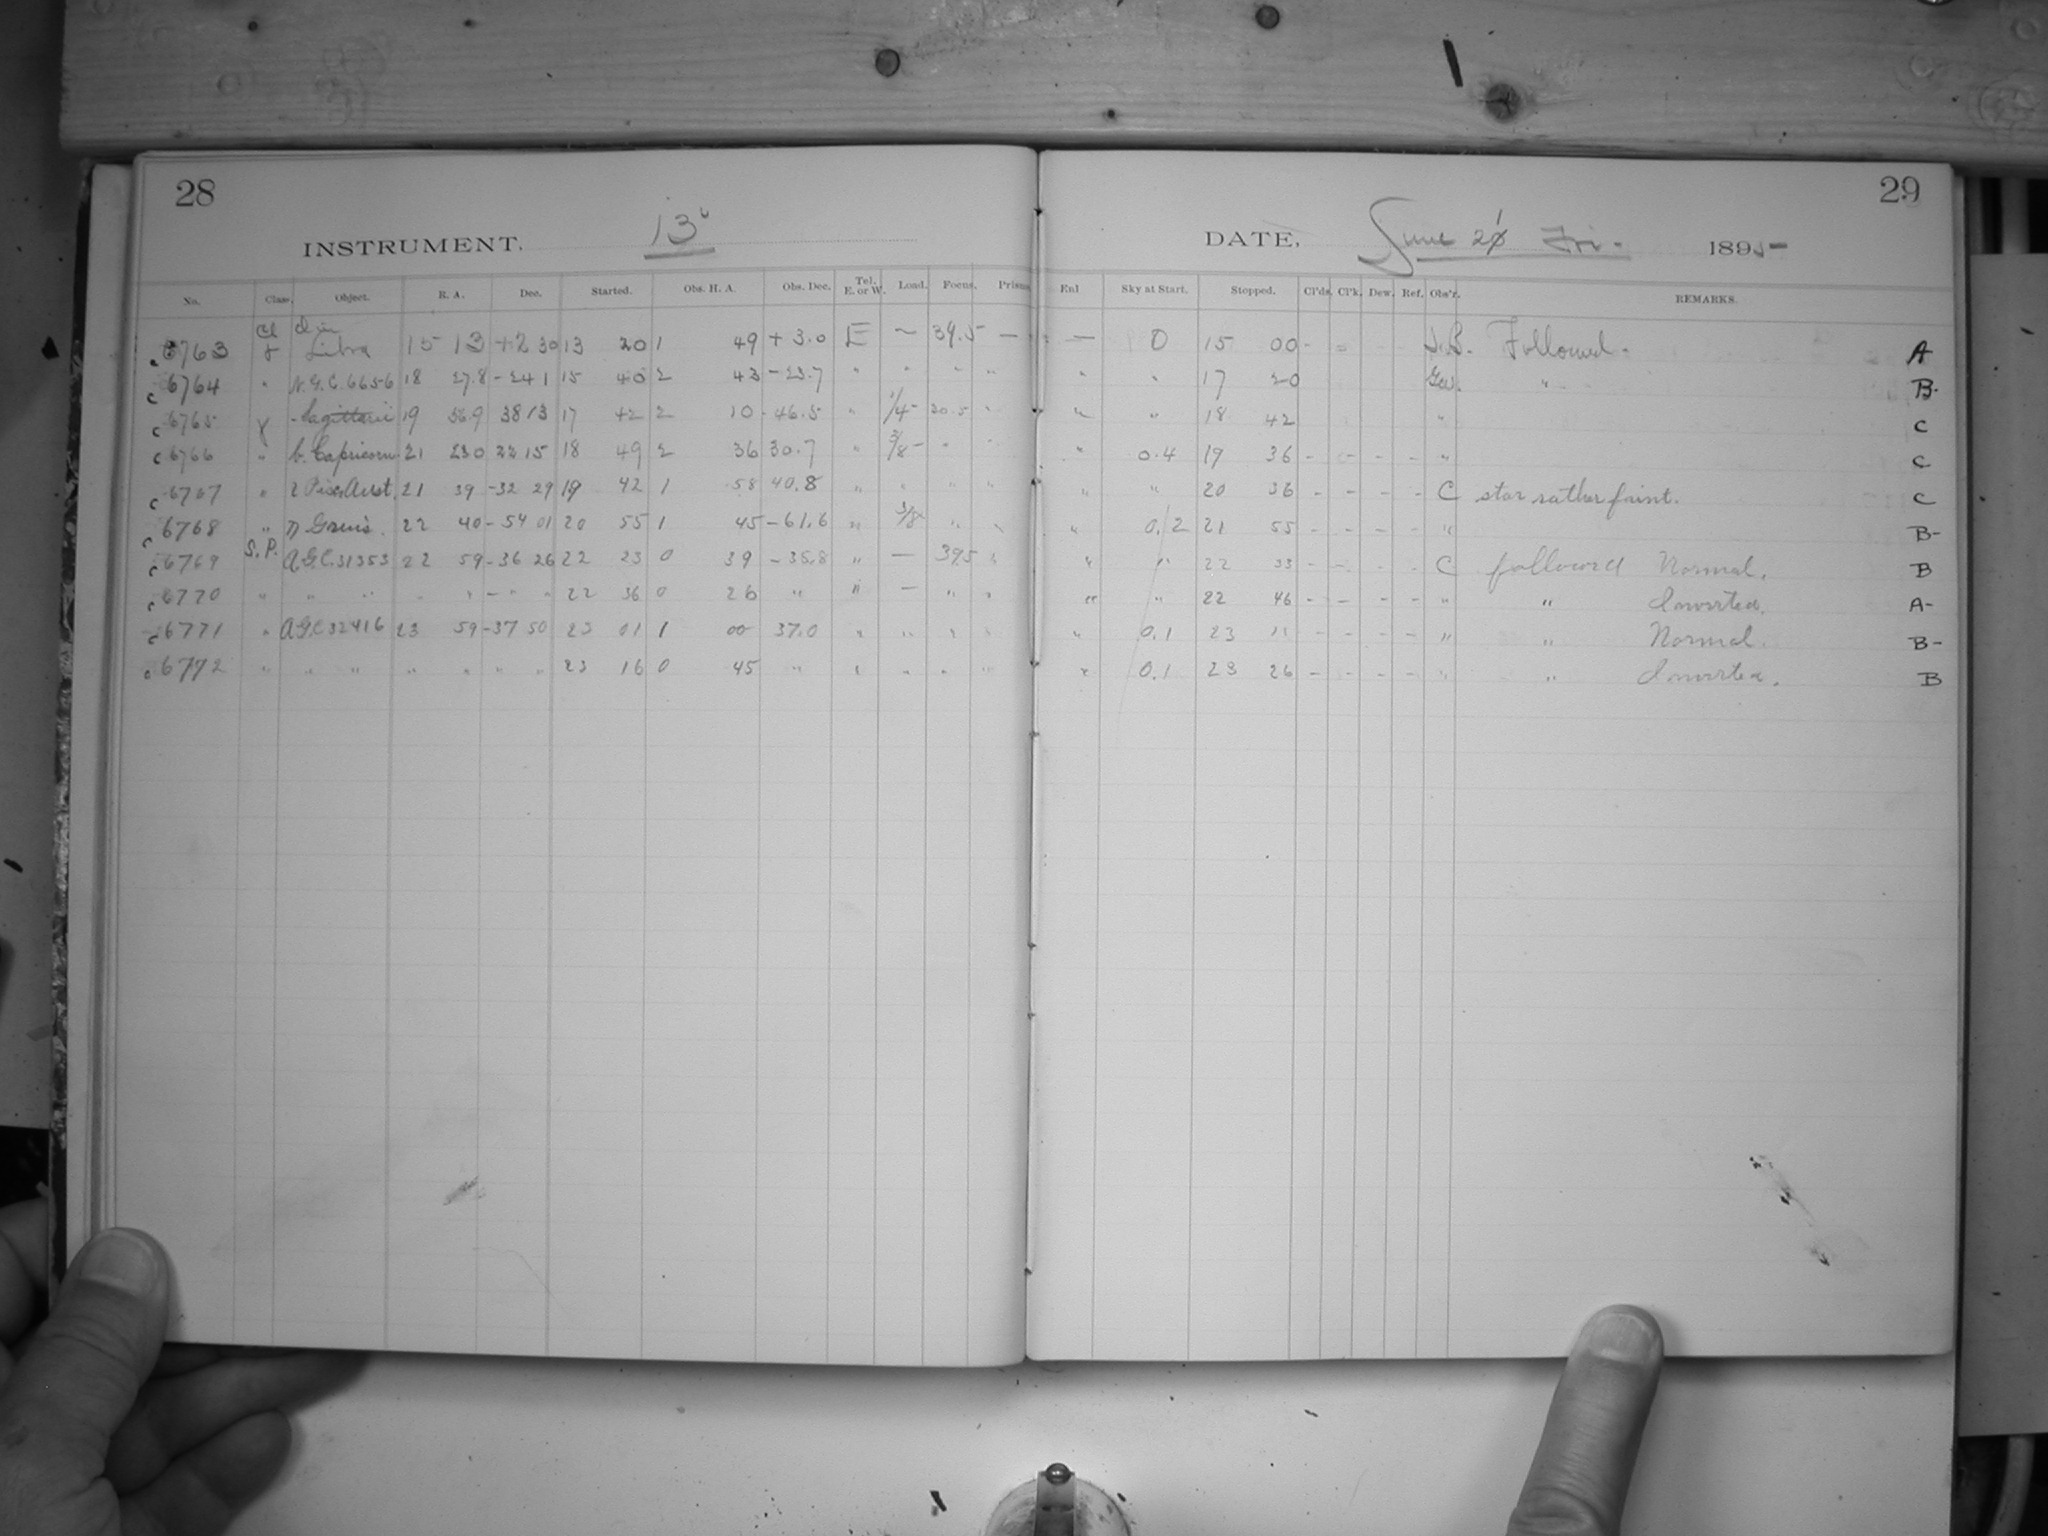 28
INSTRUMENT. 13"
No. Class. Object. R. A. Dec. Started. Obs. H. A. Obs. Dec. Tel. E. or W. Load. Focus. Prism
c 6763 Cl γ Libra 15 13 +2 30 13 20 1 49 +3.0 E — 39.5 —
c 6764 " N.G.C. 6656 18 27.8 -24 1 15 40 2 43 -23.7 " " " "
c 6765 γ Sagittarii 19 56.9 38 13 17 42 2 10 -46.5 " 1/4- 20.5 "
c 6766 " b. Capricorn 21 23 0 22 15 18 49 2 36 30.7 " 3/8- " "
c 6767 " Pisc Aust. 21 39 -32 29 19 42 1 58 40.8 " " " "
c 6768 " η Gruis. 22 40 -54 01 20 55 1 45 -61.6 " 3/8 " "
c 6769 S.P. A.G.C. 31353 22 59 -36 26 22 23 0 39 -35.8 " — 39.5 "
c 6770 " " " " " - " " 22 36 0 26 " " — " "
c 6771 " A.G.C 32416 23 59 -37 50 23 01 1 00 37.0 " " " "
c 6772 " " " " " " " 23 16 0 45 " " " " "
29
DATE, June 21 Fri. 1895
Enl Sky at Start. Stopped. Cl'ds. Cl'k. Dew. Ref. Obs'r. REMARKS.
— 0 15 00 - - Followed. A
" " 17 20 " B-
" " 18 42 " C
" 0.4 19 36 - - - - " C
" " 20 36 - - - - C star rather faint. C
" 0.2 21 55 - - - - " B-
" " 22 33 - - - - C followed Normal. B
" " 22 46 - - - - " " Inverted. A-
" 0.1 23 11 - - - - " " Normal. B-
" 0.1 23 26 - - - - " " Inverted. B